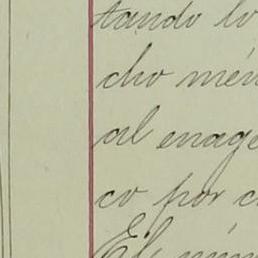 tando lo
cho mén
al enage
co por c
El núm